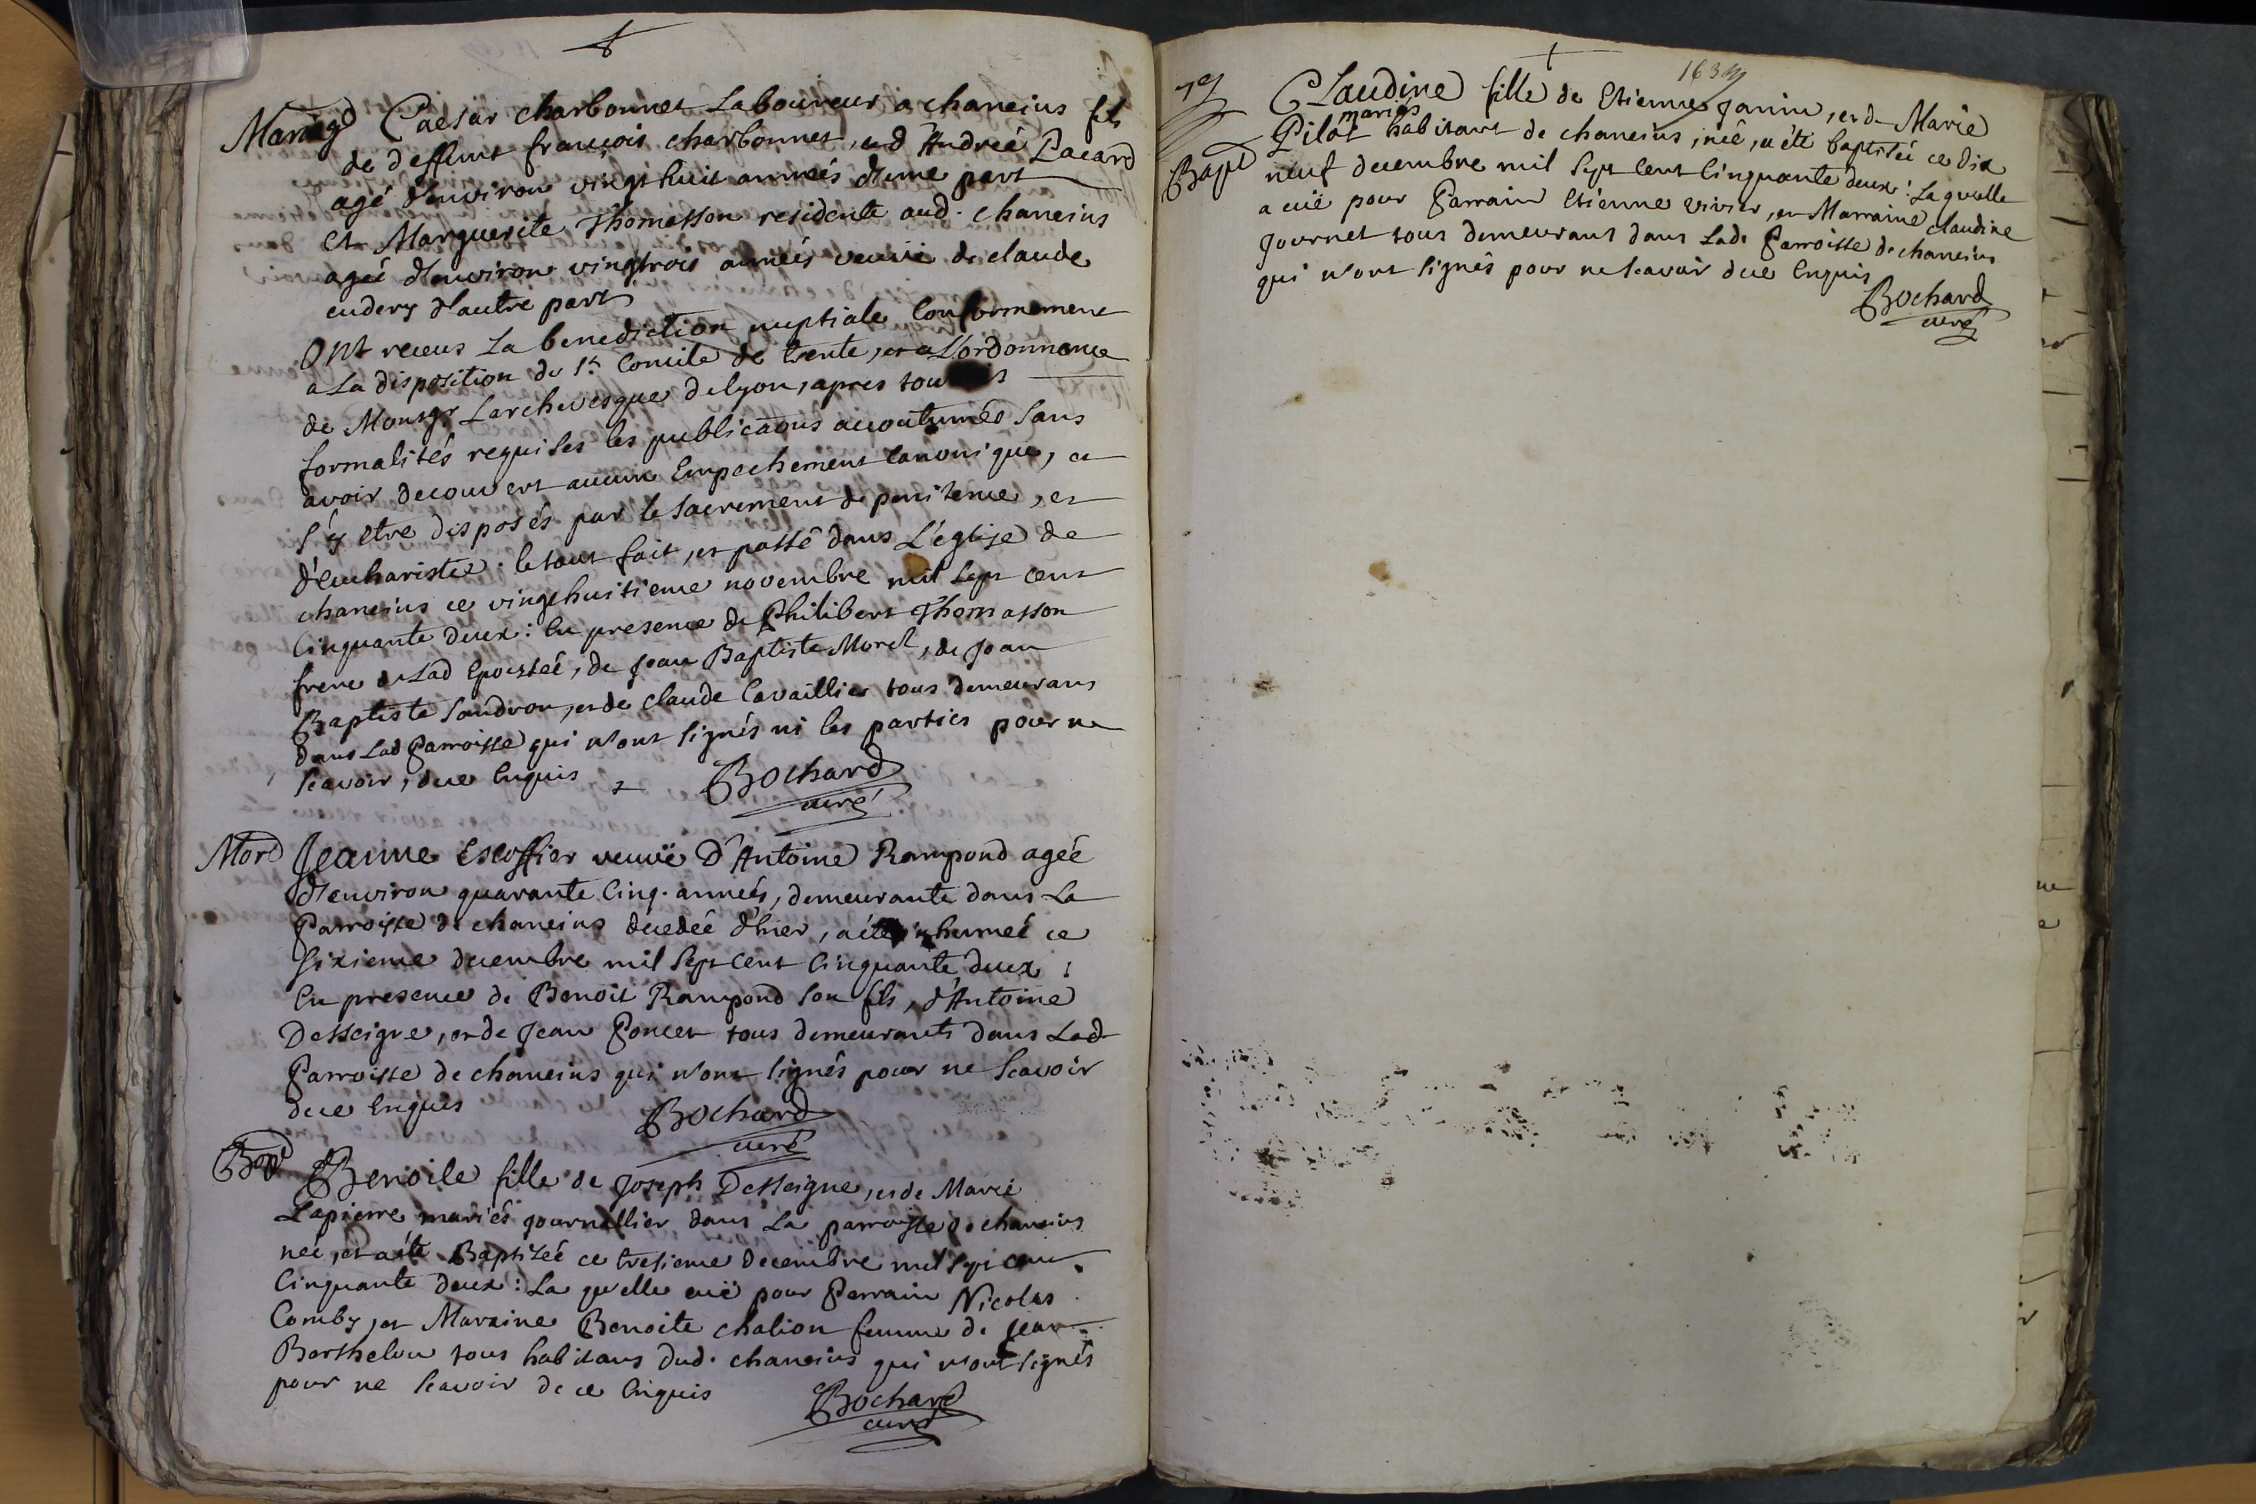 Mariag Caesar charbonnet Laboureur a chaneins fils
de deffunt françois charbonnet, et d'Andreé Pacard
agé d'environ vingt huit anneés d'une part
et Marguerite Thomasson residente aud. chaneins
ageé d'environ vingtrois anneés veuve de claude
d'autre part
ONt receus La benediction nuptiale Conformement
a La disposition du St. Concile de trente, et a L'ordonnance
de Monsgr Larchevesque de lyon, apres
formalités requises les publicaons accoutumées sans
avoir decouvert aucun Empechement canonique, et
s'ÿ etre disposés par le sacrement de penitence, et
d'eucharistie: le tout fait, et passé dans L'église de
chaneins ce vingthuitieme novembre mil sept cent
Cinquante deux: En presence de Philibert Thomasson
frere de Lad Epouseé, de Jean Baptiste Morel, de Jean
Baptiste Sandron, et de claude Cavaillier tous demeurans
dans Lad Parroisse qui n'ont signés ni les parties pour ne
scavoir, de ce Enquis
Bochard
curé
Mort Jeanne Escoffier veuve D'Antoine Rampond ageé
d'environ quarante Cinq. anneés, demeurante dans La
Parroisse de chaneins decedeé d'hier, a été inhumeé ce
sixieme decembre mil sept cent Cinquante deux:
En presence de Benoit Rampond son fils, d'Antoine
Desseigne, et de Jean Poncet tous demeurants dans Lad
Parroisse de chaneins qui n'ont signés pour ne scavoir
de ce Enquis
Bochard
curé
Benoite fille de Joseph Desseigne, et de Marie
Lapierre mariés journallier dans La parroisse de chaneins
neé, et a été Baptiseé ce tresieme decembre mil sept cent
Cinquante deux: La quelle a eüe pour Parrain Nicolas
Comby, et Maraine Benoite chalion femme de Jean
Berthelon tous habitans dud. chaneins qui n'ont signés
pour ne scavoir de ce Enquis
Bochard
curé
Bapt CLaudine fille de Etienne Janin, et de Marie
Pilot mariés habitant de chaneins, neé, a été baptiseé ce dix
neuf decembre mil sept Cent Cinquante deux: La quelle
a eüe pour Parrain Etienne vivier, et Marraine claudine
Journet tous demeurans dans Lad. Parroisse de chaneins
qui n'ont signés pour ne scavoir de ce Enquis
Bochard
curé